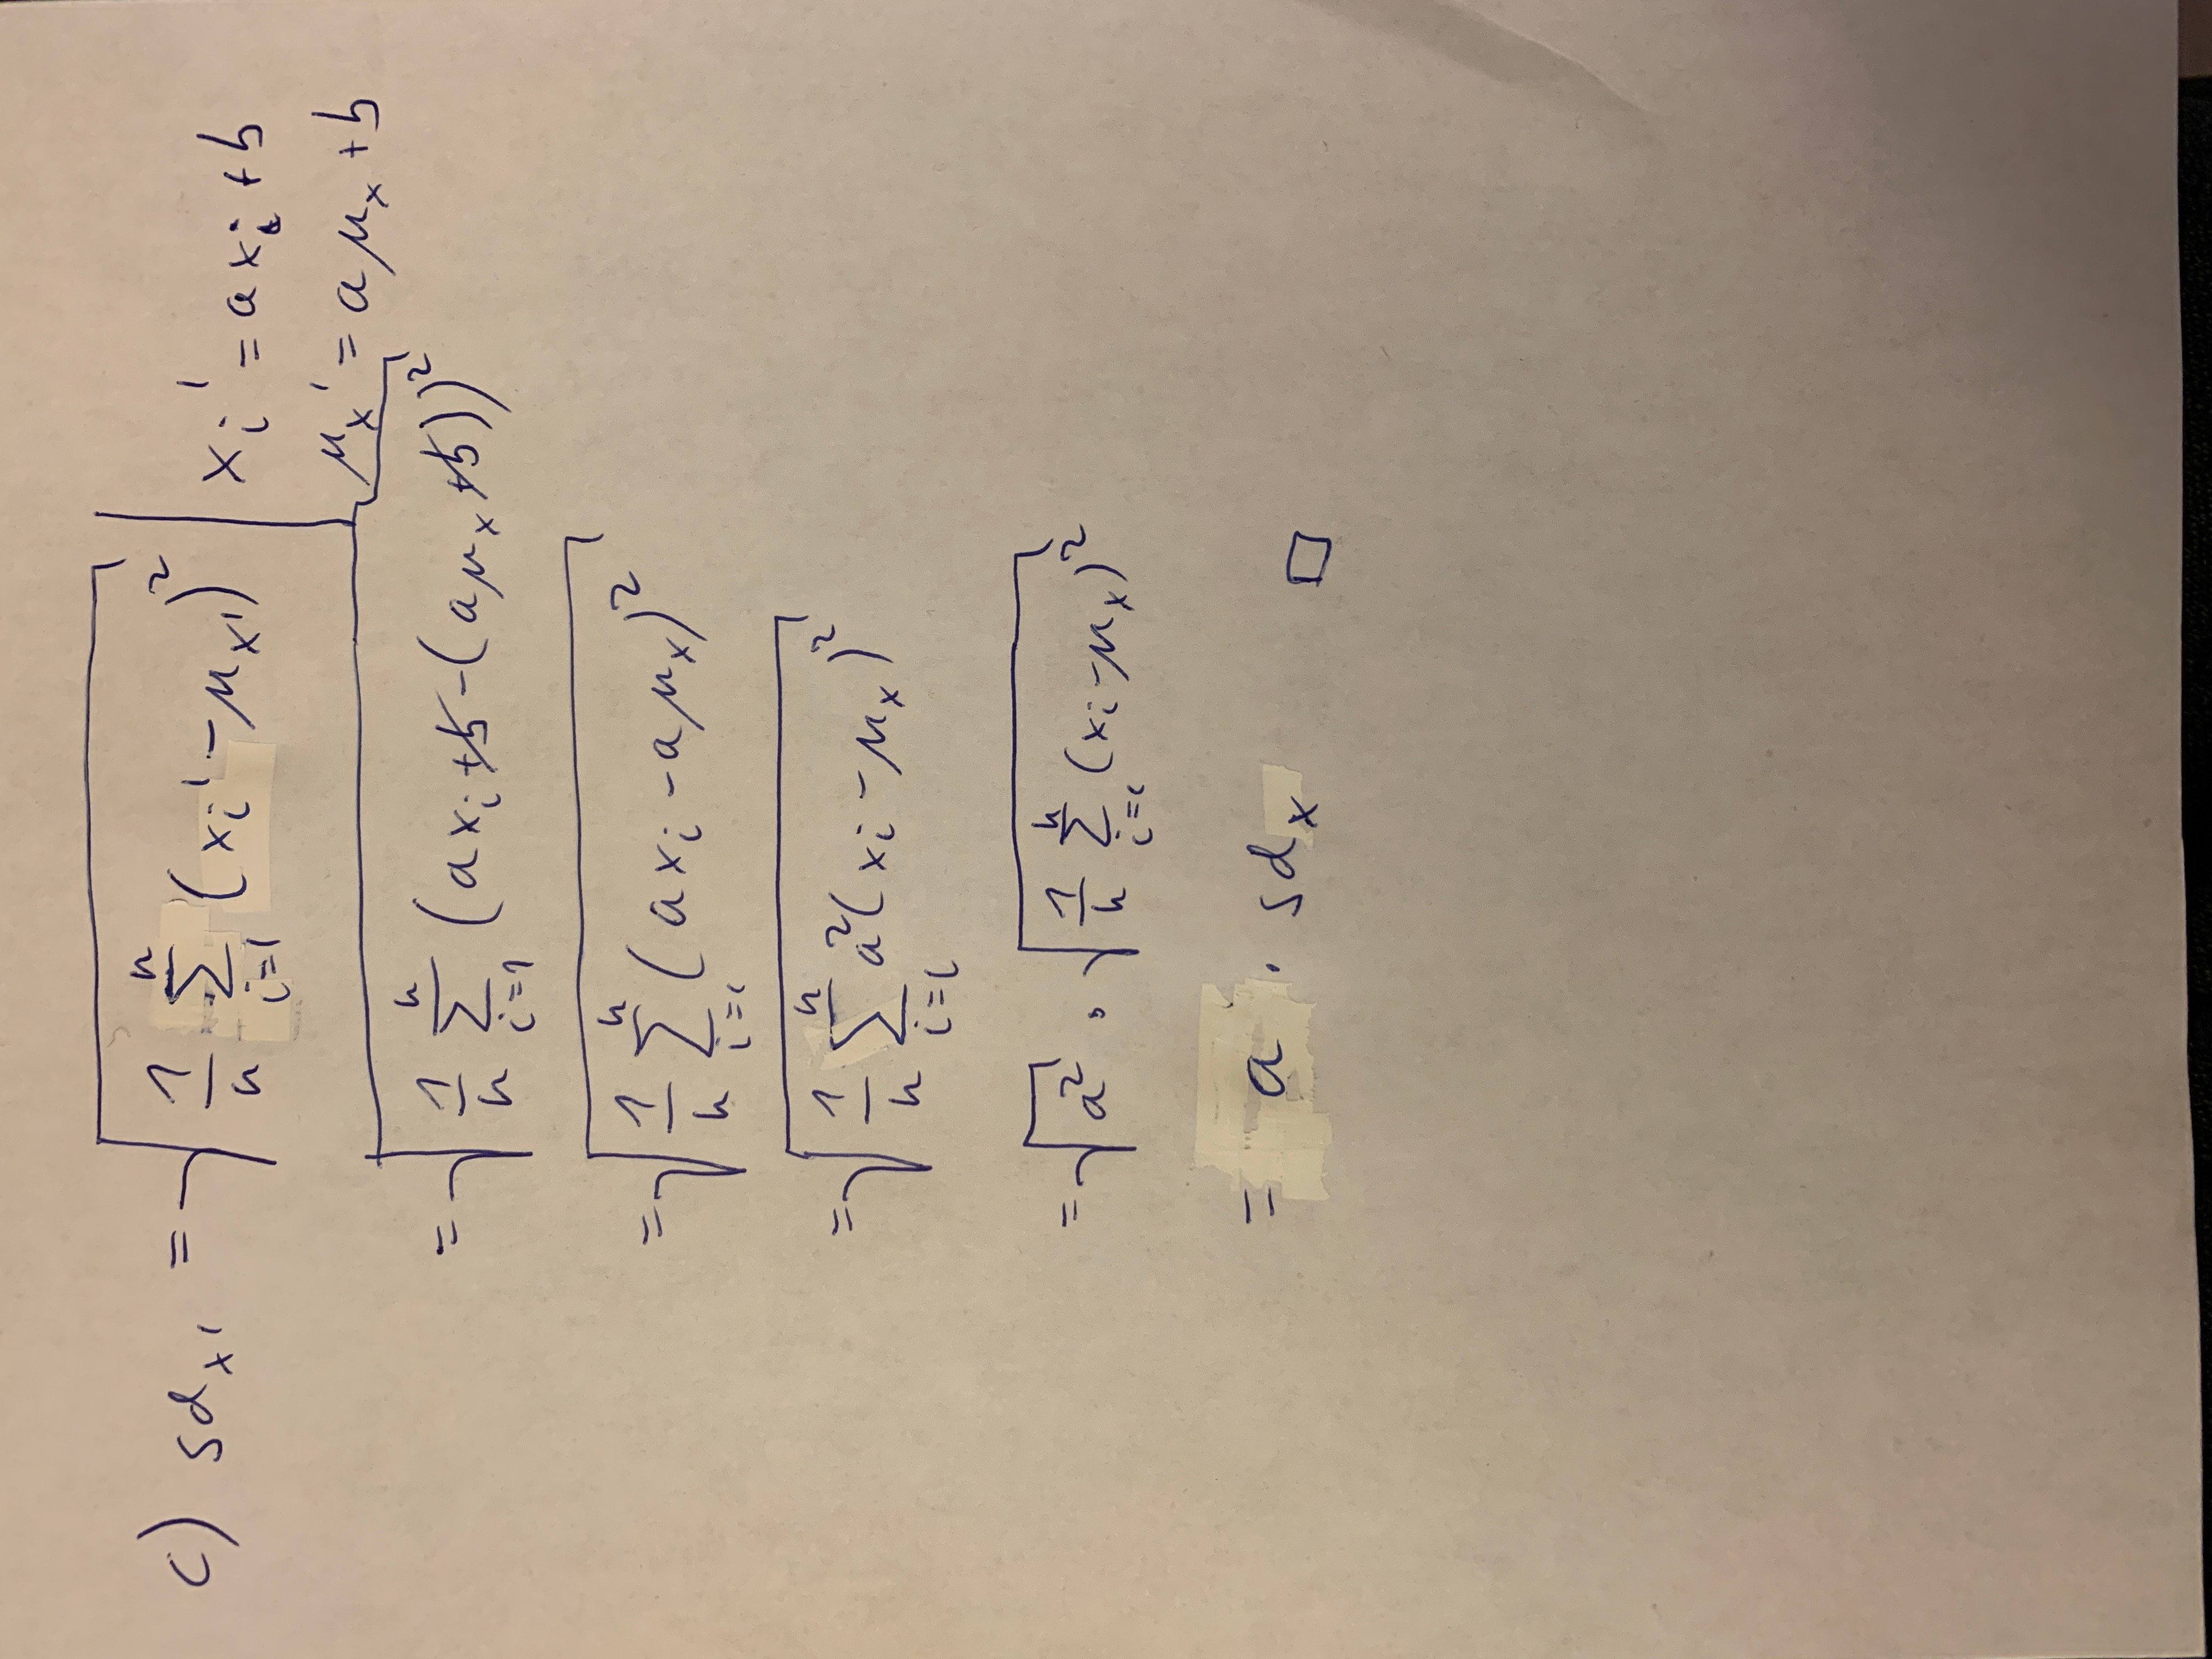 c) sd_x' = √(1/n ∑_{i=1}^{n} (x_i' - μ_x')²) | x_i' = a x_i + b
μ_x' = a μ_x + b
= √(1/n ∑_{i=1}^{n} (a x_i + b - (a μ_x + b))²)
= √(1/n ∑_{i=1}^{n} (a x_i - a μ_x)²)
= √(1/n ∑_{i=1}^{n} a² (x_i - μ_x)²)
= √(a²) · √(1/n ∑_{i=1}^{n} (x_i - μ_x)²)
= a · sd_x □